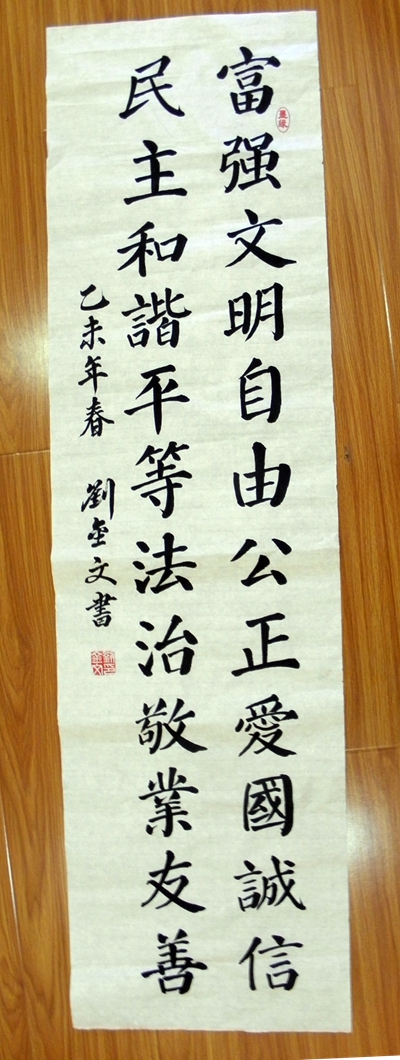 富强文明自由公正愛國誠信
民主和諧平等法治敬業友善
乙未年春 劉金文書